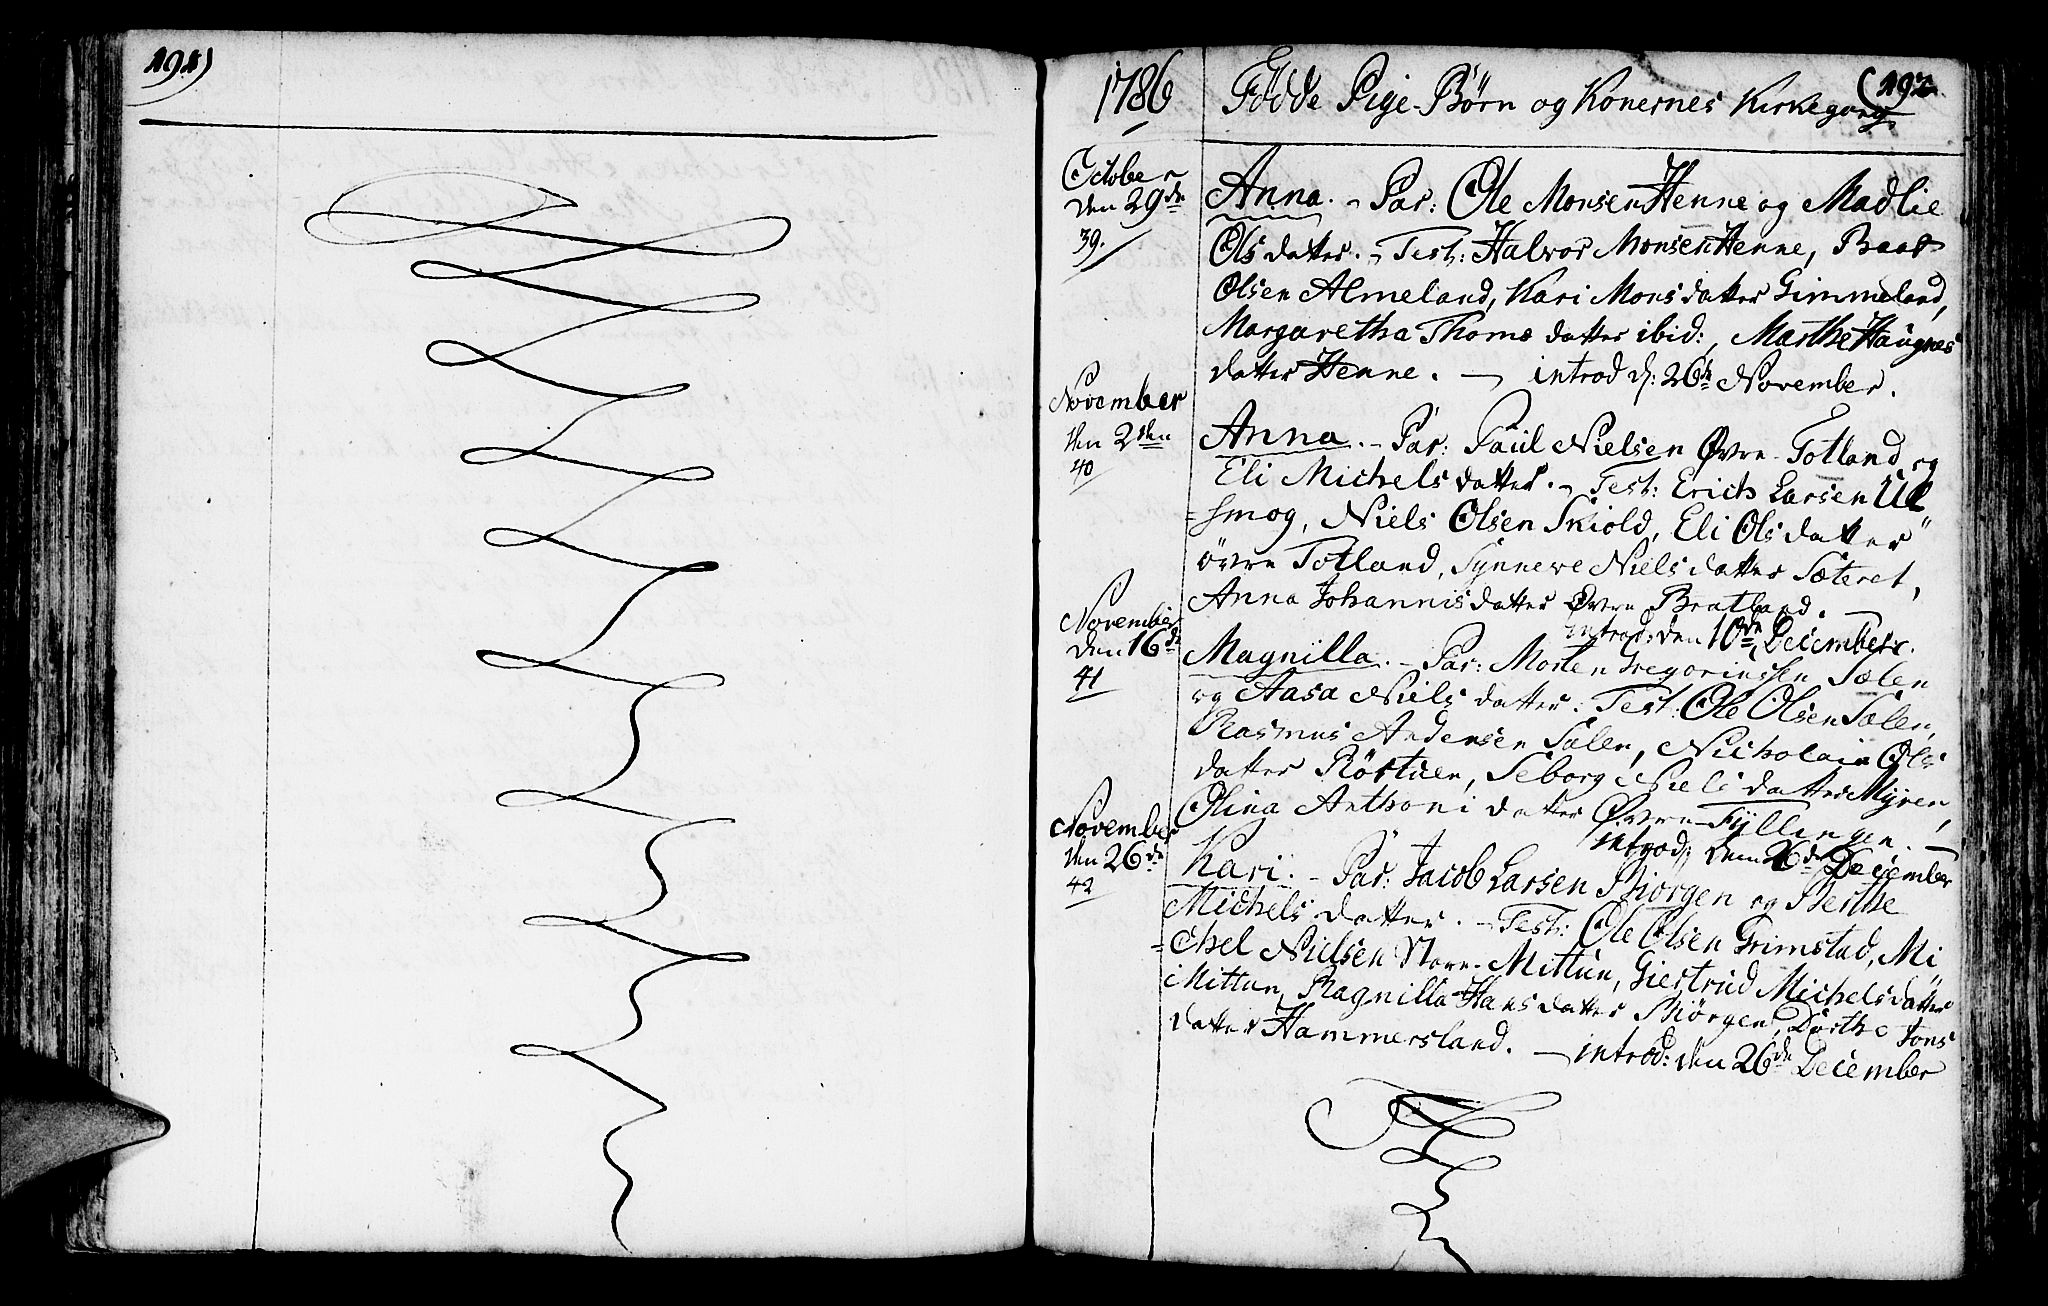 191)
1786 Födde Pige-Børn og Konernes Kirkegang (192
October
den 29de
39.
Anna. - Par: Ole Monsen Henne og Madlie
Olsdatter. - Test: Halvor Monsen Henne, Baar
Olsen Almeland, Kari Monsdatter Gimmeland,
Margaretha Thomædatter ibid:, Marthe Haugnes
datter Henne. - introd d: 26de November.
November
den 2den
40
Anna. - Par: Paul Nielsen Øvre-Totland og
Eli Michelsdatter. - Test: Erich Larsen Ul
=smog, Niels Olsen Skiold, Eli Olsdatter
övre Totland, Synneve Nielsdatter Sæteret,
Anna Johannisdatter Øvre Bratland. -
introd: den 10de December.
November
den 16de
41
Magnilla. - Par: Morten Gregoriussen Sælen
og Aasa Nielsdatter. Test: Ole Olsen Sælen,
Rasmus Andersen Sælen, Nicholain Ols
datter Röstuen, Seborg Nielsdatter Myren,
Olina Anthonidatter Øvre-Fyllingen. -
introd: den 26de December
November
den 26de
42
Kari. - Par: Jacob Larsen Biørgen og Berthe
Michelsdatter. - Test: Ole Olsen Grimstad, Mi
=chel Nielsen Store-Mittun, Giertrud Michelsdatter
Mittun, Ragnilla Hansdatter Biørgen, Dorthe Jons
datter Hammersland. - introd: den 26de December